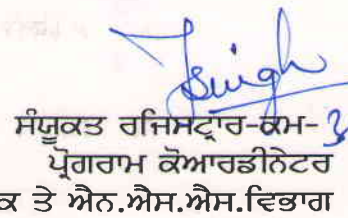 ਸੰਯੁਕਤ ਰਜਿਸਟ੍ਰਾਰ-ਕਮ-
ਪ੍ਰੋਗਰਾਮ ਕੋਆਰਡੀਨੇਟਰ
ਤੇ ਐਨ.ਐਸ.ਐਸ.ਵਿਭਾਗ